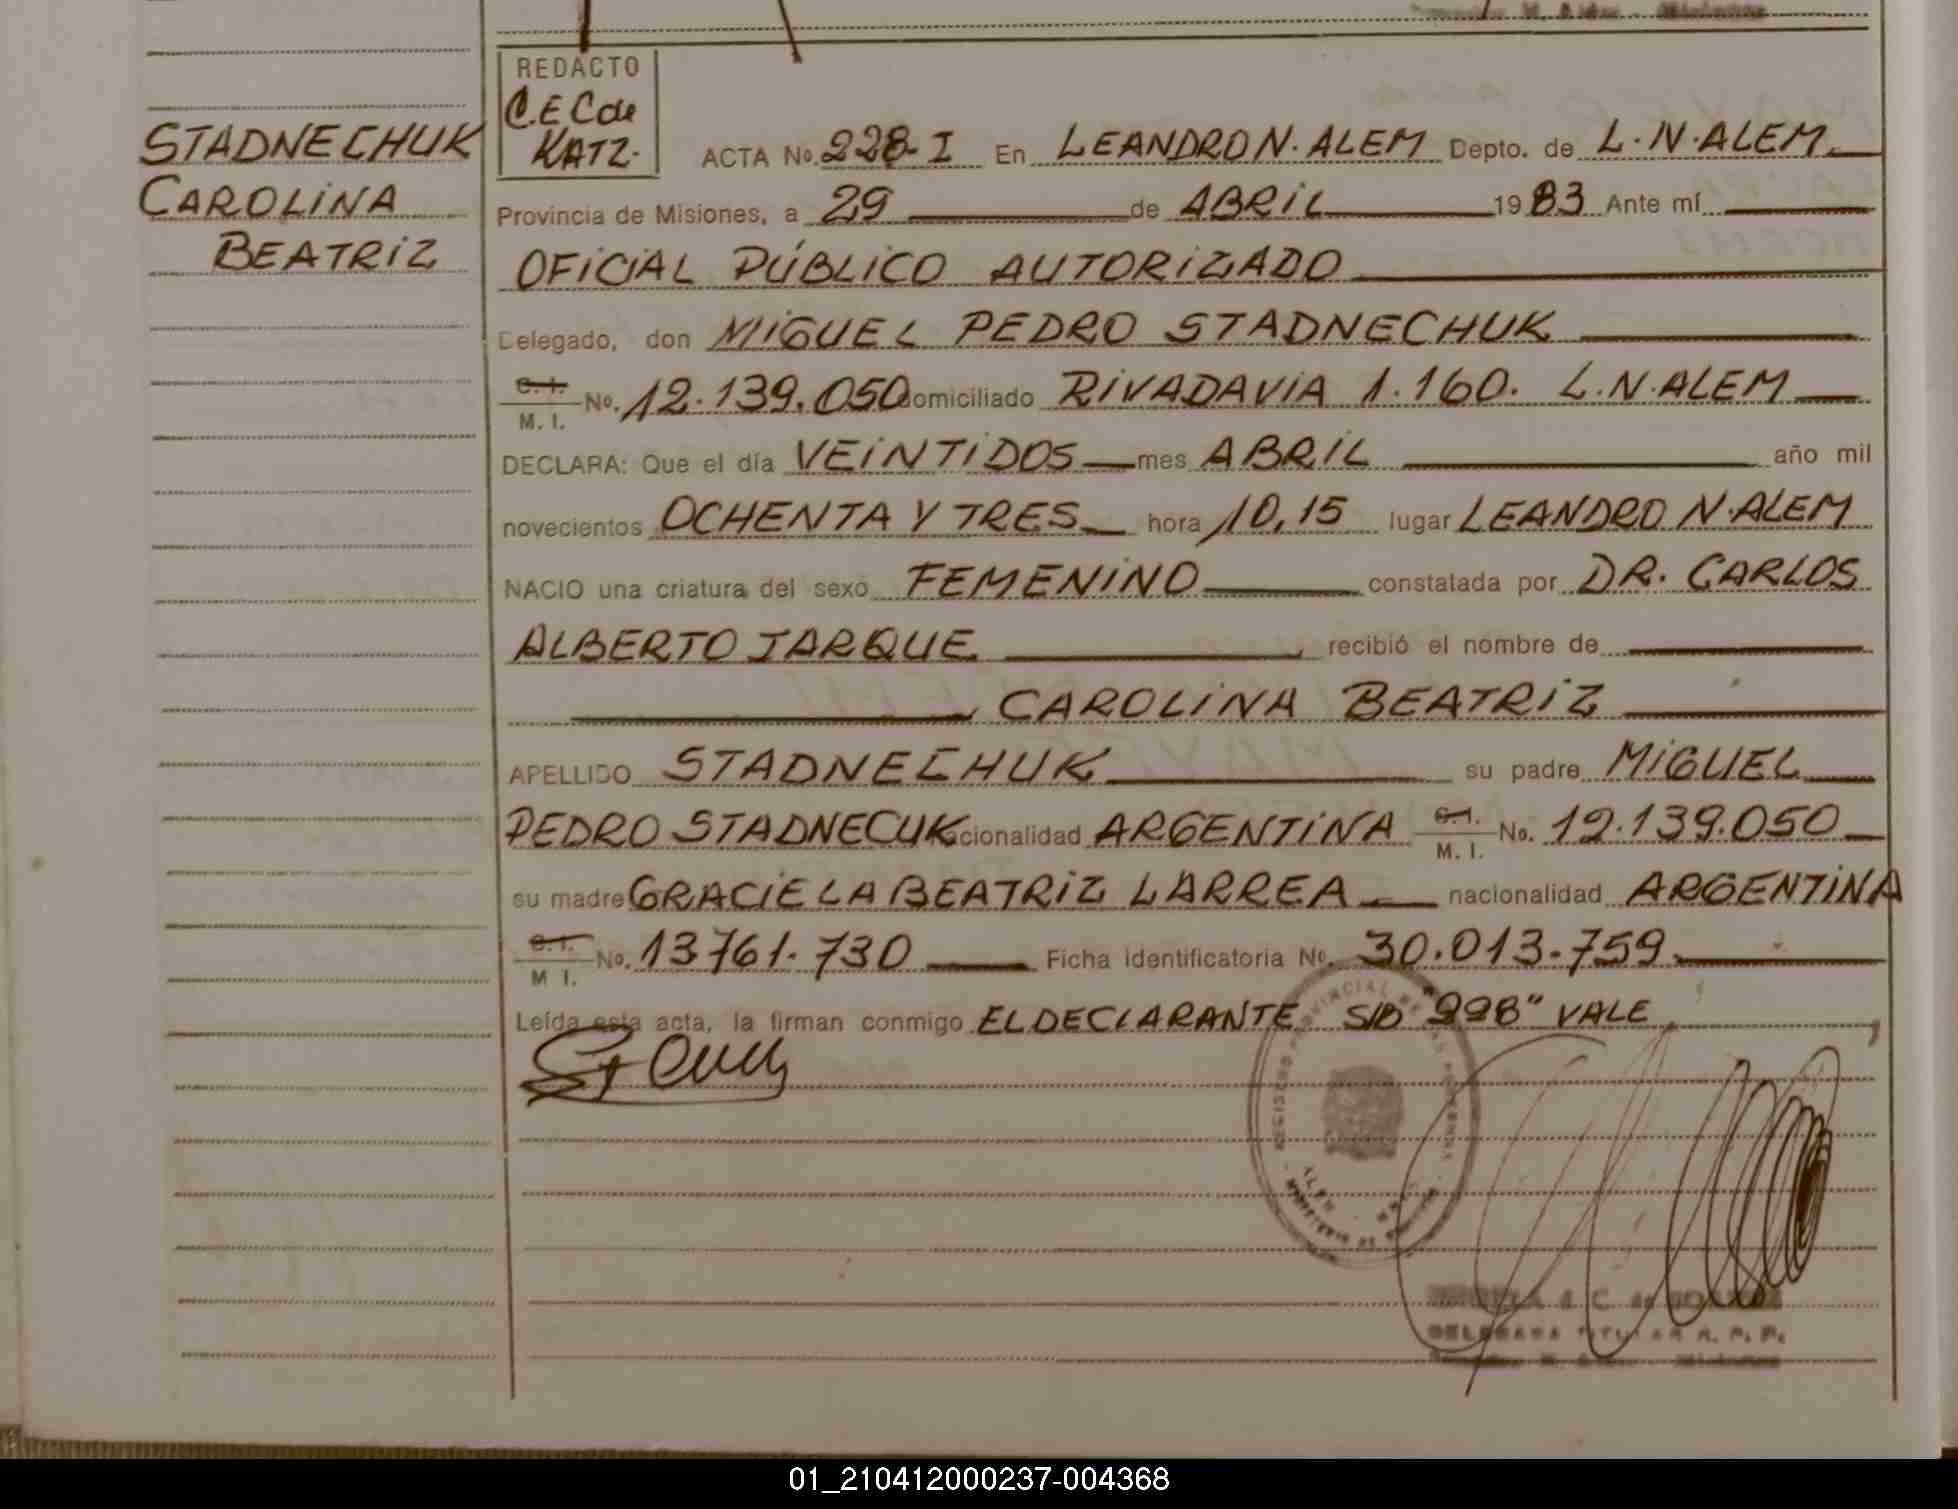 STADNECHUK
CAROLINA
BEATRIZ
REDACTO
C.E.C de
KATZ.
ACTA No. 228-I En LEANDRO N. ALEM Depto. de L.N.ALEM.
Provincia de Misiones, a 29 de ABRIL 1983 Ante mí
OFICIAL PÚBLICO AUTORIZADO
Delegado, don MIGUEL PEDRO STADNECHUK
C.I.
M. I. No. 12.139.050 domiciliado RIVADAVIA 1.160. L.N.ALEM
DECLARA: Que el día VEINTIDOS mes ABRIL año mil
novecientos OCHENTA Y TRES hora 10,15 lugar LEANDRO N.ALEM
NACIO una criatura del sexo FEMENINO constatada por DR. CARLOS
ALBERTO JARQUE recibió el nombre de
CAROLINA BEATRIZ
APELLIDO STADNECHUK su padre MIGUEL
PEDRO STADNECUK nacionalidad ARGENTINA C.I. M. I. No. 12.139.050
su madre GRACIELA BEATRIZ LARREA nacionalidad ARGENTINA
C.I.
M I. No. 13761.730 Ficha identificatoria No. 30.013.759
Leída esta acta, la firman conmigo EL DECLARANTE S/B "228" VALE
REGISTRO PROVINCIAL DE LAS PERSONAS
ALEM
MINISTERIO DE
DELEGADA TITULAR R. P. P.
01_210412000237-004368